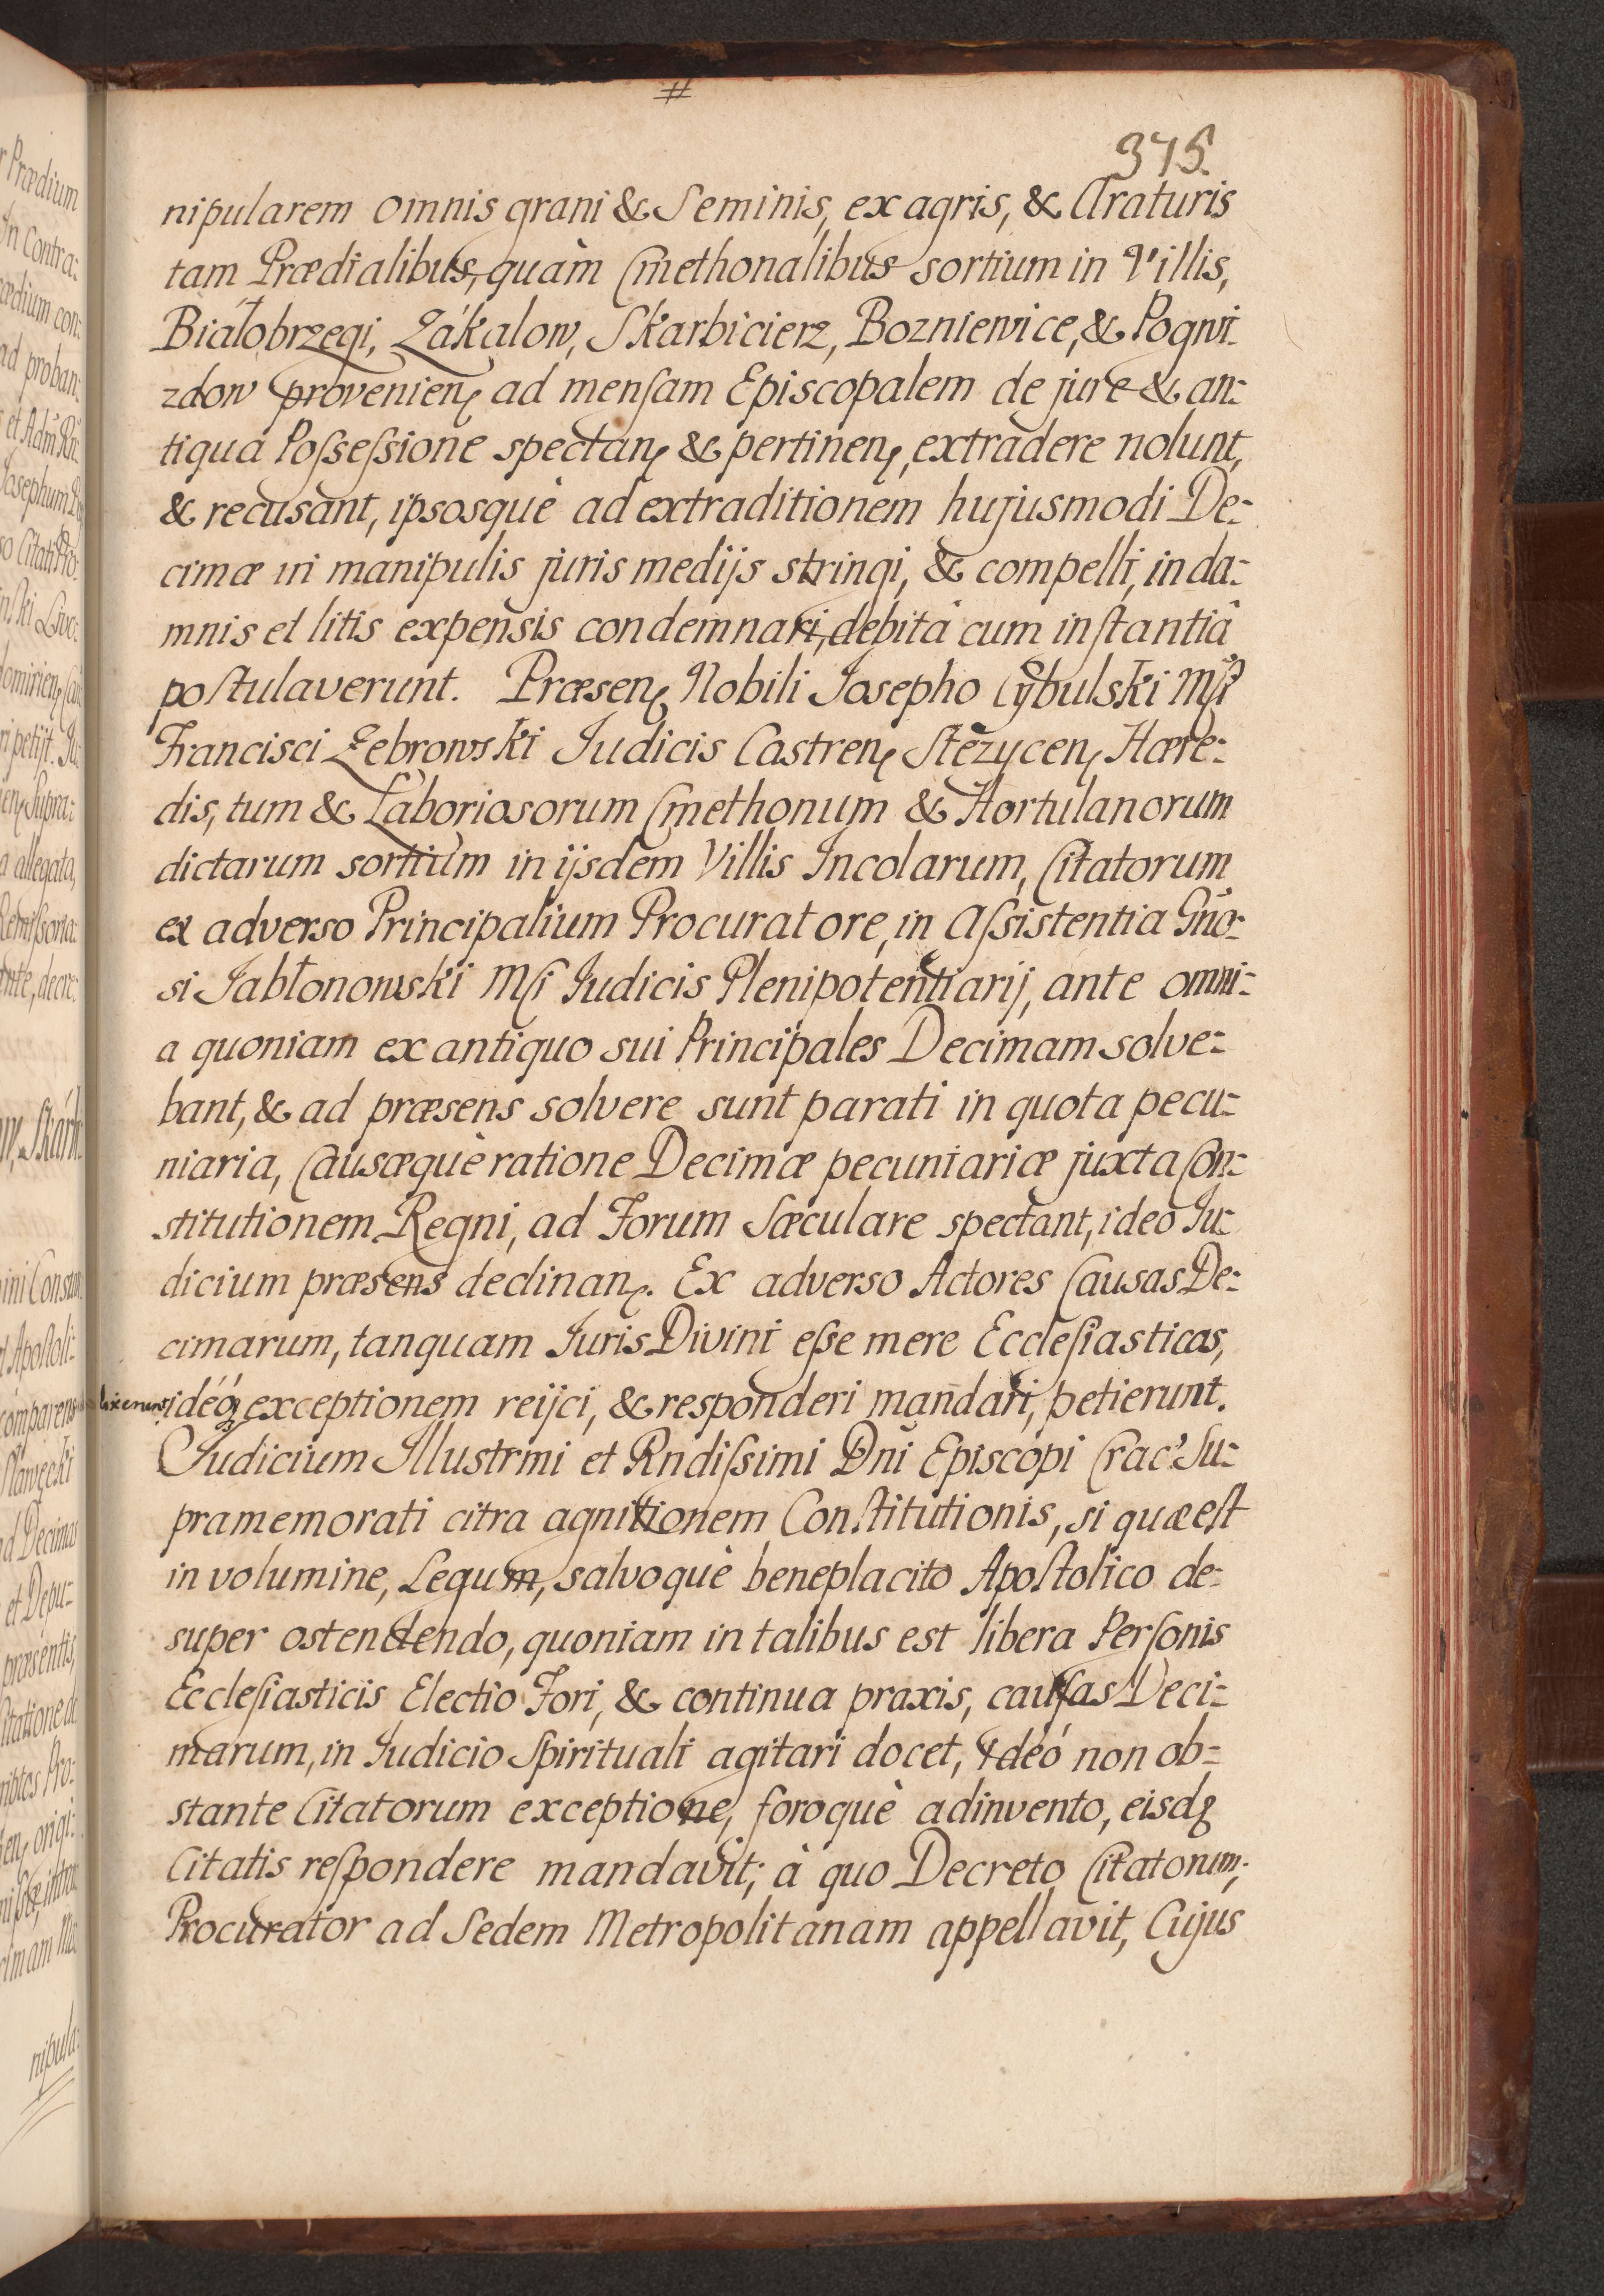 #
375.
nipularem omnis grani & Seminis, ex agris, & Araturis
tam Prædialibus, quàm Cmethonalibus sortium in Villis,
Białobrzegi, Żákalow, Skarbicierz, Bozniewice, & Pogwi-
zdow provenien, ad menſam Episcopalem de jure & an-
tiquâ Poſseſsione spectan, & pertinen, extradere nolunt,
& recusant, ipsosquè ad extraditionem hujusmodi De-
cimæ in manipulis juris medijs stringi, & compelli, in da-
mnis et litis expensis condemnari, debitâ cum inſtantiâ
poſtulaverunt. Præsen, Nobili Josepho Cÿbulski Mſi
Francisci Żebrowski Judicis Castren, Stęzycen, Hære-
dis, tum & Laboriosorum Cmethonum & Hortulanorum
dictarum sortium in ijsdem Villis Incolarum, Citatorum
ex adverso Principalium Procuratore, in Aſsistentia Gño-
si Jabłonowski Mſi Judicis Plenipotentiarij, ante omni-
a quoniam ex antiquo sui Principales Decimam solve-
bant, & ad præsens solvere sunt parati in quota pecu-
niaria, Causæquè ratione Decimæ pecuniariæ juxta Con-
stitutionem Regni, ad Forum Sæculare spectant, ideo Ju-
dicium præsens declinan,. Ex adverso Actores Causas De-
cimarum, tanquam Juris Divini eſse mere Eccleſiasticas,
idéoq, exceptionem reijci, & responderi mandari, petierunt.
Judicium Illustrmi et Rndiſsimi Dñi Episcopi Crac. Su-
pramemorati citra agnitionem Conſtitutionis, si quæ eſt
in volumine, Legum, salvoquè beneplacito Apoſtolico de-
super ostendendo, quoniam in talibus est libera Perſonis
Eccleſiasticis Electio Fori, & continua praxis, cauſas Deci-
marum, in Judicio Spirituali agitari docet, ideó non ob-
stante Citatorum exceptione, foroquè adinvento, eisdq
Citatis reſpondere mandavit; à quo Decreto Citatorum,
Procurator ad Sedem Metropolitanam appellavit, Cujus